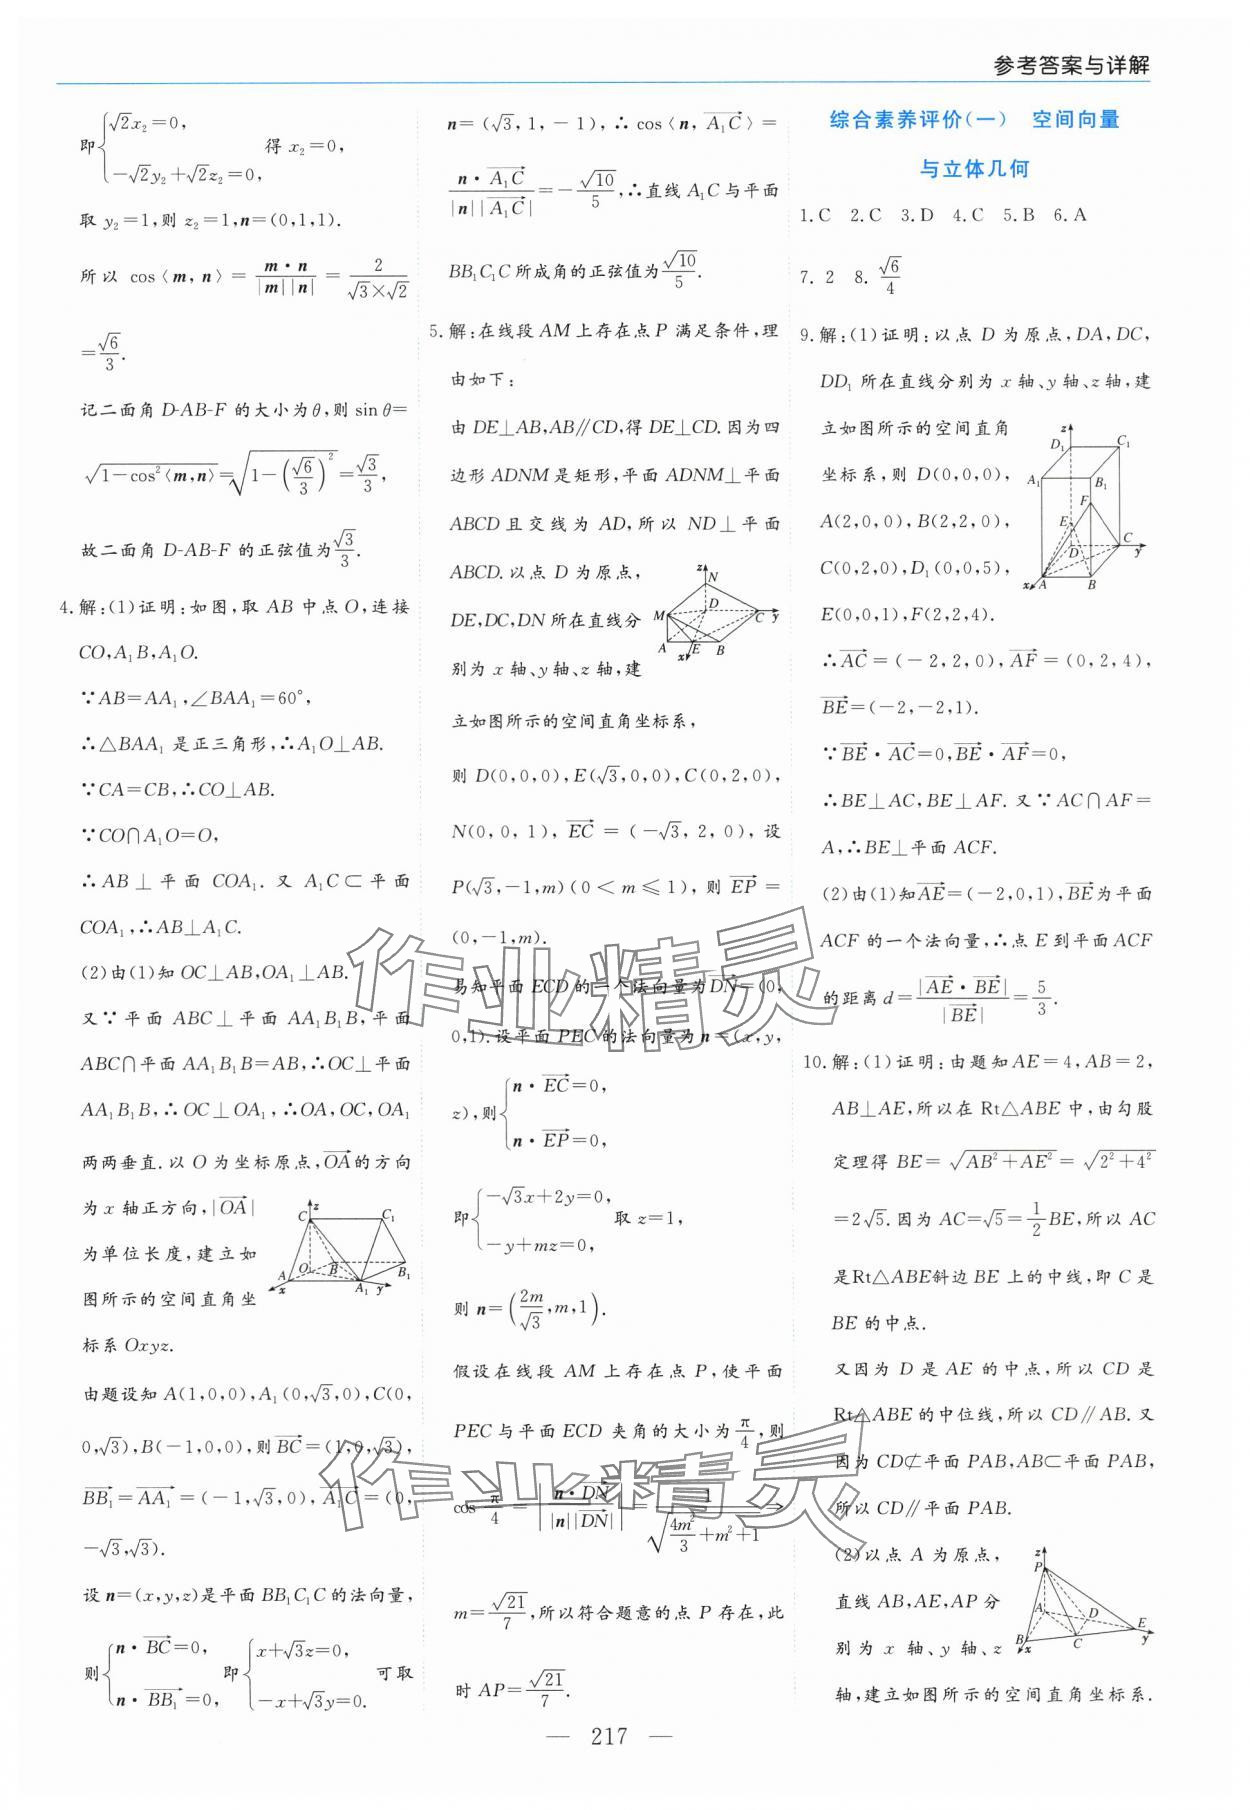 参考答案与详解
即{√2x₂=0,
-√2y₂+√2z₂=0, 得 x₂=0,
取 y₂=1,则 z₂=1,n=(0,1,1).
所以 cos〈m,n〉= m·n/|m||n| = 2/(√3×√2)
=√6/3.
记二面角 D-AB-F 的大小为θ,则 sin θ=
√(1-cos²〈m,n〉)=√(1-(√6/3)²)=√3/3,
故二面角 D-AB-F 的正弦值为√3/3.
4.解:(1)证明:如图,取 AB 中点 O,连接
CO,A₁B,A₁O.
∵AB=AA₁,∠BAA₁=60°,
∴△BAA₁ 是正三角形,∴A₁O⊥AB.
∵CA=CB,∴CO⊥AB.
∵CO∩A₁O=O,
∴AB⊥平面 COA₁.又 A₁C⊂平面
COA₁,∴AB⊥A₁C.
(2)由(1)知 OC⊥AB,OA₁⊥AB.
又∵平面 ABC⊥平面 AA₁B₁B,平面
ABC∩平面 AA₁B₁B=AB,∴OC⊥平面
AA₁B₁B,∴OC⊥OA₁,∴OA,OC,OA₁
两两垂直.以 O 为坐标原点,OA→的方向
为 x 轴正方向,|OA→|
为单位长度,建立如
图所示的空间直角坐
标系 Oxyz.
z C C₁ O B B₁ A x A₁ y
由题设知 A(1,0,0),A₁(0,√3,0),C(0,
0,√3),B(-1,0,0),则BC→=(1,0,√3),
BB₁→=AA₁→=(-1,√3,0),A₁C→=(0,
-√3,√3).
设 n=(x,y,z)是平面 BB₁C₁C 的法向量,
则{n·BC→=0,
n·BB₁→=0, 即{x+√3z=0,
-x+√3y=0. 可取
n=(√3,1,-1),∴cos〈n,A₁C→〉=
n·A₁C→/|n||A₁C→|=-√10/5,∴直线 A₁C 与平面
BB₁C₁C 所成角的正弦值为√10/5.
5.解:在线段 AM 上存在点 P 满足条件,理
由如下:
由 DE⊥AB,AB∥CD,得 DE⊥CD.因为四
边形 ADNM 是矩形,平面 ADNM⊥平面
ABCD 且交线为 AD,所以 ND⊥平面
ABCD.以点 D 为原点,
DE,DC,DN 所在直线分
别为 x 轴、y 轴、z 轴,建
z N D M C y A E B x
立如图所示的空间直角坐标系,
则 D(0,0,0),E(√3,0,0),C(0,2,0),
N(0,0,1),EC→=(-√3,2,0),设
P(√3,-1,m)(0<m≤1),则 EP→=
(0,-1,m).
易知平面 ECD 的一个法向量为DN→=(0,
0,1).设平面 PEC 的法向量为 n=(x,y,
z),则{n·EC→=0,
n·EP→=0,
即{-√3x+2y=0,
-y+mz=0, 取 z=1,
则 n=(2m/√3,m,1).
假设在线段 AM 上存在点 P,使平面
PEC 与平面 ECD 夹角的大小为π/4,则
cos π/4=|n·DN→/|n||DN→||=1/√(4m²/3+m²+1)⇒
m=√21/7,所以符合题意的点 P 存在,此
时 AP=√21/7.
综合素养评价(一) 空间向量
与立体几何
1.C 2.C 3.D 4.C 5.B 6.A
7. 2 8. √6/4
9.解:(1)证明:以点 D 为原点,DA,DC,
DD₁ 所在直线分别为 x 轴、y 轴、z 轴,建
立如图所示的空间直角
坐标系,则 D(0,0,0),
A(2,0,0),B(2,2,0),
C(0,2,0),D₁(0,0,5),
E(0,0,1),F(2,2,4).
z D₁ C₁ A₁ B₁ F E D C y x A B
∴AC→=(-2,2,0),AF→=(0,2,4),
BE→=(-2,-2,1).
∵BE→·AC→=0,BE→·AF→=0,
∴BE⊥AC,BE⊥AF.又∵AC∩AF=
A,∴BE⊥平面 ACF.
(2)由(1)知AE→=(-2,0,1),BE→为平面
ACF 的一个法向量,∴点 E 到平面 ACF
的距离 d=|AE→·BE→|/|BE→|=5/3.
10.解:(1)证明:由题知 AE=4,AB=2,
AB⊥AE,所以在 Rt△ABE 中,由勾股
定理得 BE=√(AB²+AE²)=√(2²+4²)
=2√5.因为 AC=√5=1/2BE,所以 AC
是Rt△ABE斜边 BE 上的中线,即 C 是
BE 的中点.
又因为 D 是 AE 的中点,所以 CD 是
Rt△ABE 的中位线,所以 CD∥AB.又
因为 CD⊄平面 PAB,AB⊂平面 PAB,
所以 CD∥平面 PAB.
(2)以点 A 为原点,
直线 AB,AE,AP 分
别为 x 轴、y 轴、z
轴,建立如图所示的空间直角坐标系.
z P A D E B x C y
作业精灵
作业精灵
217